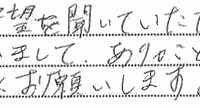 望を聞いていた
まして、ありがと
お願いします